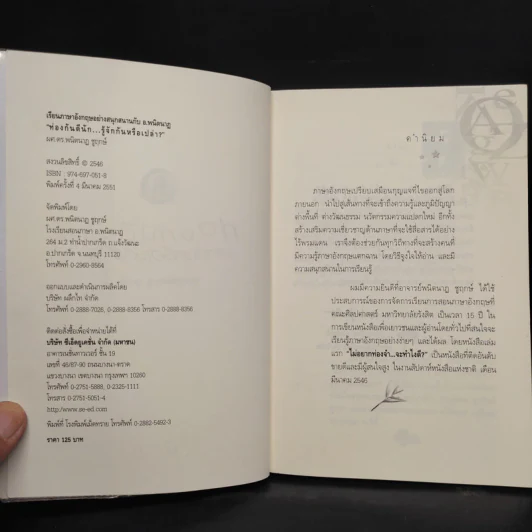 เรียนภาษาอังกฤษอย่างสนุกสนานกับ อ.พนิตนาฏ
"ท่องกันดีนัก...รู้จักกันหรือเปล่า?"
ผศ.ดร.พนิตนาฏ ชูฤกษ์
สงวนลิขสิทธิ์ © 2546
ISBN : 974-697-051-8
พิมพ์ครั้งที่ 4 มีนาคม 2551
จัดพิมพ์โดย
ผศ.ดร.พนิตนาฏ ชูฤกษ์
โรงเรียนสอนภาษา อ.พนิตนาฏ
264 ม.2 ท่าน้ำปากเกร็ด ถ.แจ้งวัฒนะ
อ.ปากเกร็ด จ.นนทบุรี 11120
โทรศัพท์ 0-2960-8564
ออกแบบและดำเนินการผลิตโดย
บริษัท ผลึกไท จำกัด
โทรศัพท์ 0-2888-7026, 0-2888-8356 โทรสาร 0-2888-8356
ติดต่อสั่งซื้อเพื่อจำหน่ายได้ที่
บริษัท ซีเอ็ดยูเคชั่น จำกัด (มหาชน)
อาคารเนชั่นทาวเวอร์ ชั้น 19
เลขที่ 46/87-90 ถนนบางนา-ตราด
แขวงบางนา เขตบางนา กรุงเทพฯ 10260
โทรศัพท์ 0-2751-5888, 0-2325-1111
โทรสาร 0-2751-5051-4
http://www.se-ed.com
พิมพ์ที่ โรงพิมพ์เม็ดทราย โทรศัพท์ 0-2882-5492-3
ราคา 125 บาท
คำนิยม
ภาษาอังกฤษเปรียบเสมือนกุญแจที่ไขออกสู่โลก
ภายนอก นำไปสู่เส้นทางที่จะเข้าถึงความรู้และภูมิปัญญา
ต่างพื้นที่ ต่างวัฒนธรรม นวัตกรรมความแปลกใหม่ อีกทั้ง
สร้างเสริมความเชี่ยวชาญด้านภาษาที่จะใช้สื่อสารได้อย่าง
ไร้พรมแดน เราจึงต้องช่วยกันทุกวิถีทางที่จะสร้างคนที่
มีความรู้ภาษาอังกฤษแตกฉาน โดยวิธีจูงใจให้อ่าน และมี
ความสนุกสนานในการเรียนรู้
ผมมีความยินดีที่อาจารย์พนิตนาฏ ชูฤกษ์ ได้ใช้
ประสบการณ์ของการจัดการเรียนการสอนภาษาอังกฤษที่
คณะศิลปศาสตร์ มหาวิทยาลัยรังสิต เป็นเวลา 15 ปี ใน
การเขียนหนังสือเพื่อเยาวชนและผู้อ่านโดยทั่วไปที่สนใจจะ
เรียนรู้ภาษาอังกฤษอย่างง่ายๆ และได้ผล โดยหนังสือเล่ม
แรก "ไม่อยากท่องจำ...จะทำไงดี?" เป็นหนังสือที่ติดอันดับ
ขายดีและมีผู้สนใจสูง ในงานสัปดาห์หนังสือแห่งชาติ เดือน
มีนาคม 2546